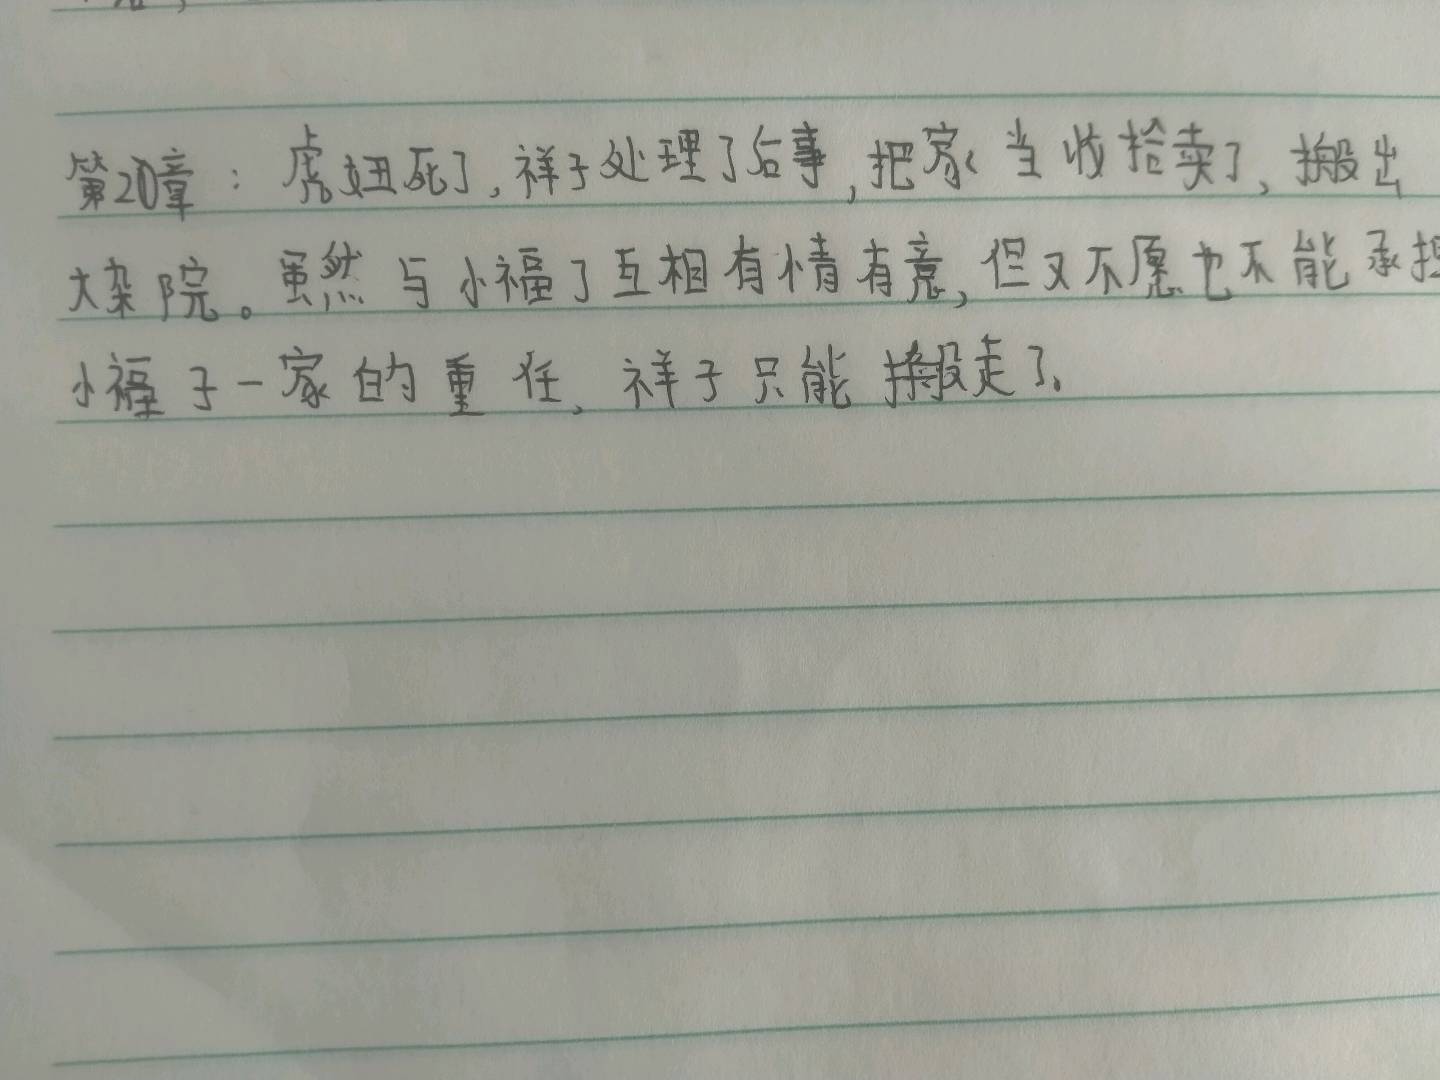 第20章：虎妞死了,祥子处理了后事,把家当收拾卖了,搬出
大杂院。虽然与小福了互相有情有意,但又不愿也不能承担
小福子一家的重任,祥子只能搬走了、